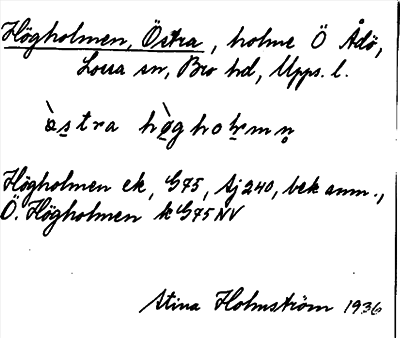 Högholmen, Östra, holme Ö Ådö,
Lossa sn, Bro hd, Upps. l.
ὰs̲tra hø̀gholmn̥
Högholmen ek, G75, Aj 240, bek anm.,
Ö. Högholmen k G75 NV
Stina Holmström 1936